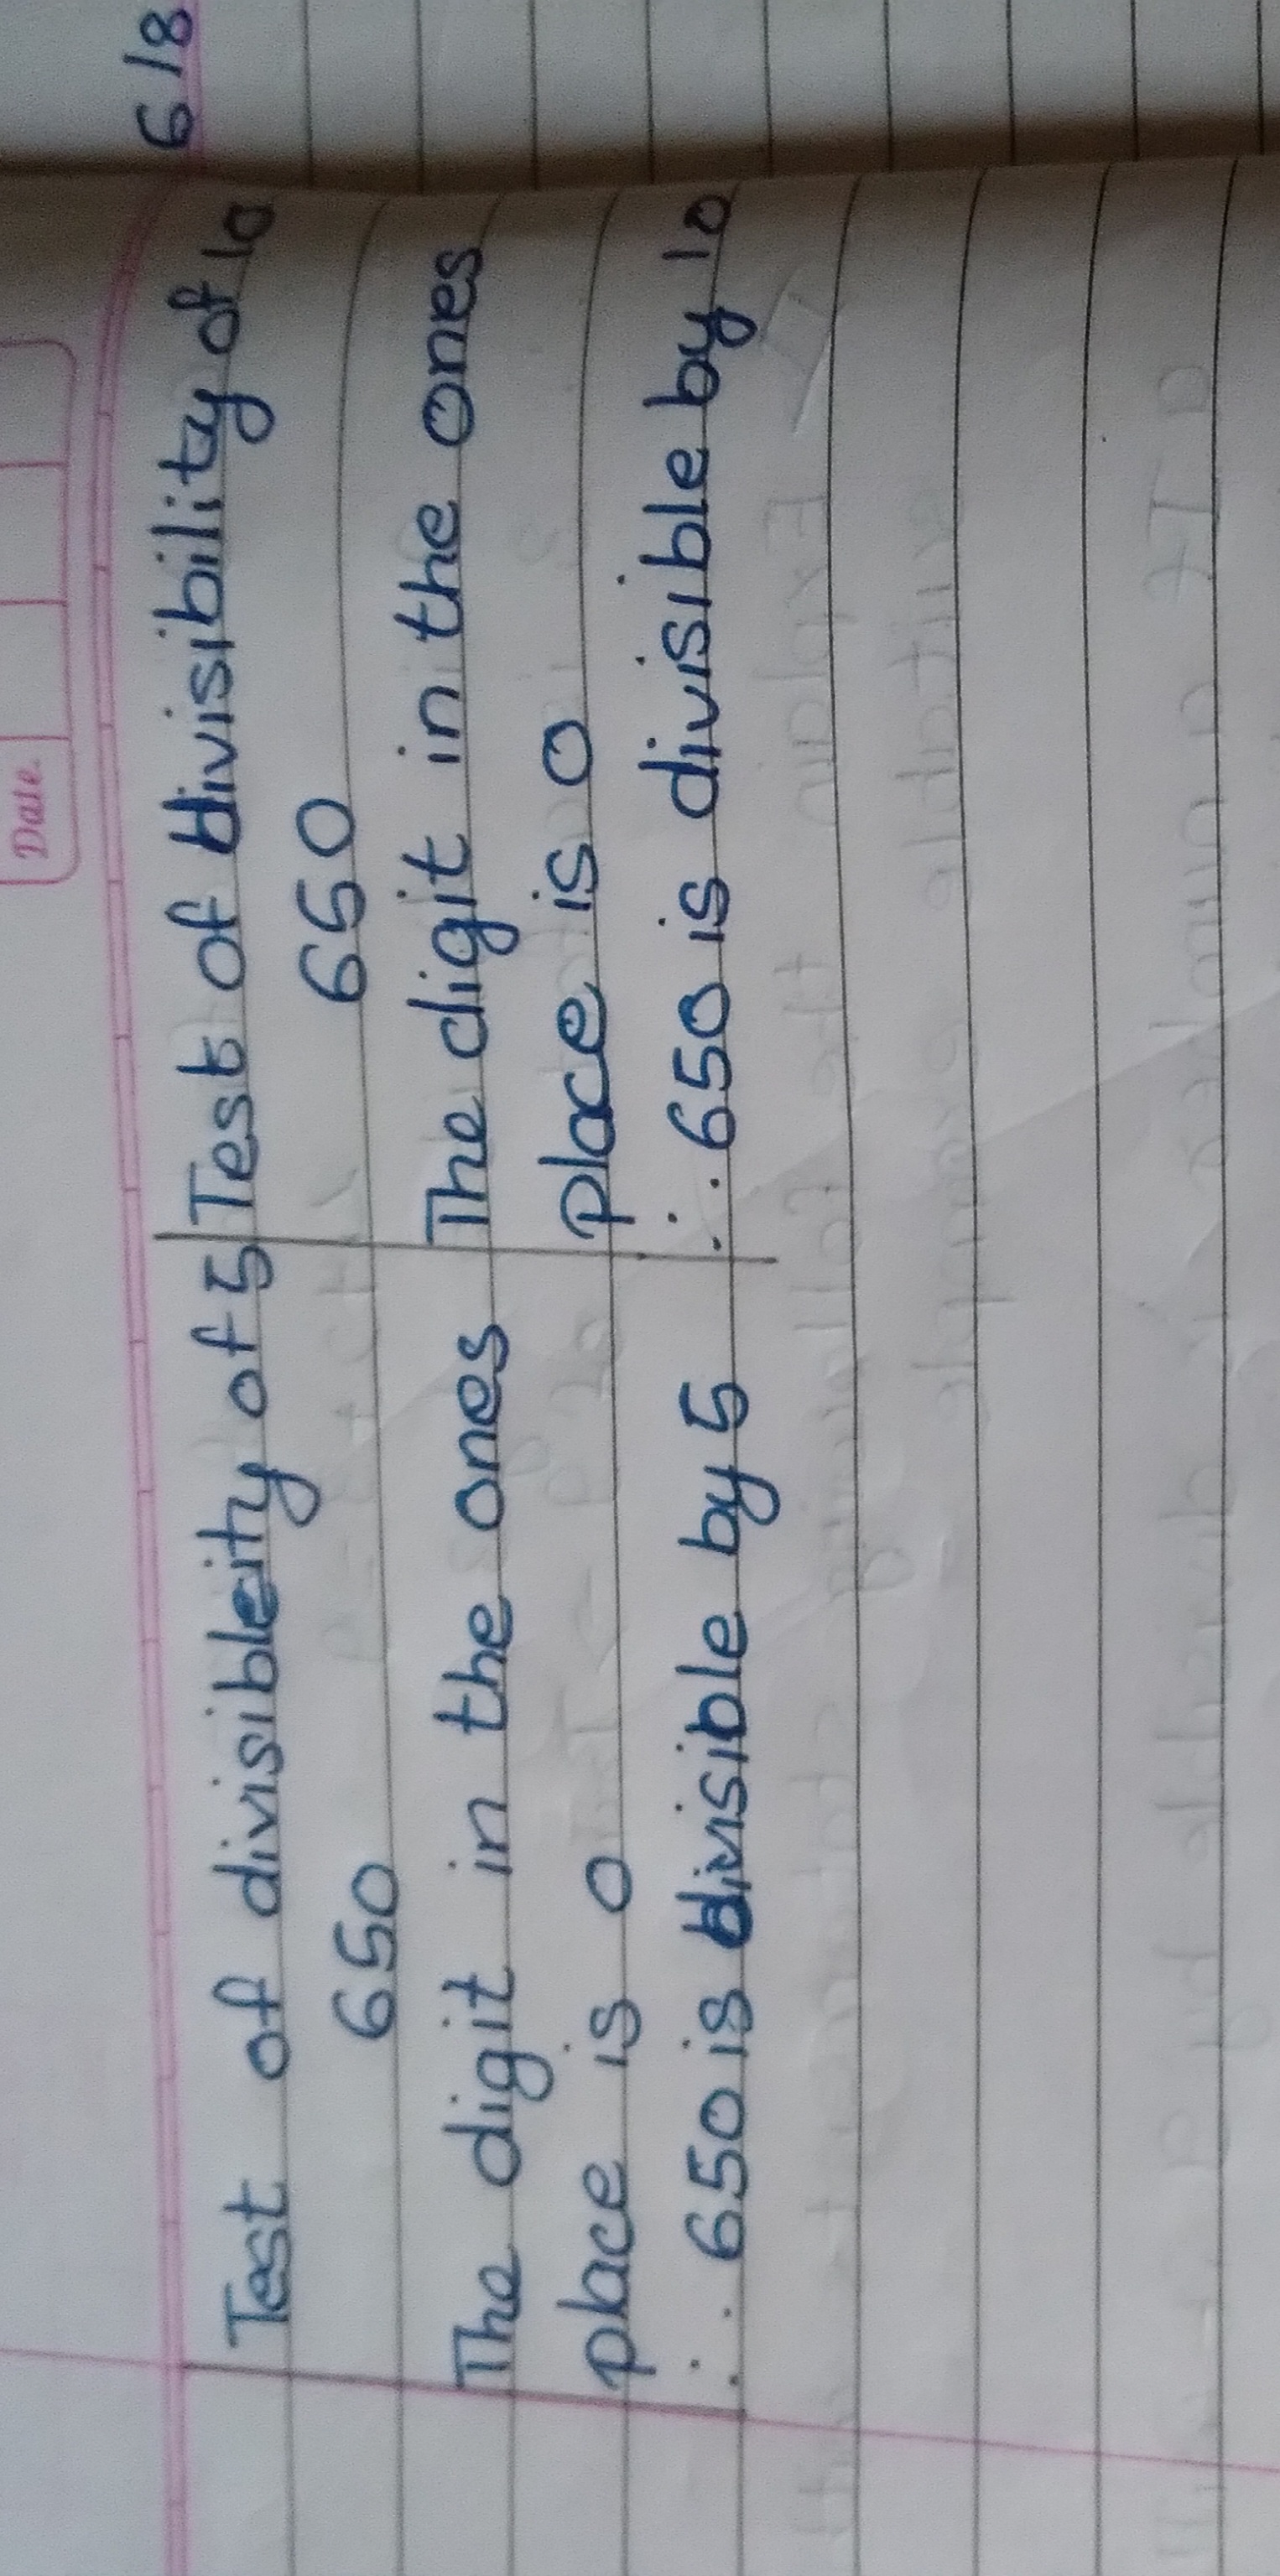 Date
6/8
Test of divisibleity of 5
650
The digit in the ones
place is 0
∴ 650 is divisible by 5
Test of divisibility of 10
650
The digit in the ones
place is 0
∴ 650 is divisible by 10